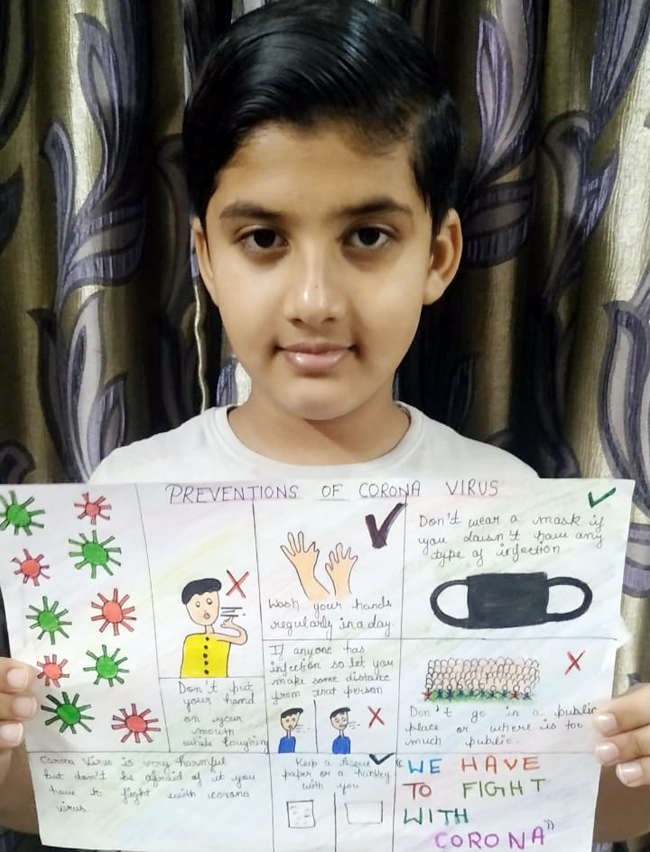 PREVENTIONS OF CORONA VIRUS
Don't put
your hand
on your
mouth
while
Wash your hands
regularly in a day.
Don't wear a mask if
you doesn't have any
type of infection
If anyone has
infection so let you
make some distance
from that person
Don't go in a public
place or where is too
much public.
Corona Virus is very harmful
but don't be afraid of it you
have to fight with corona
virus.
Keep a tissue
paper or a
with you
"WE HAVE
TO FIGHT
WITH
CORONA"